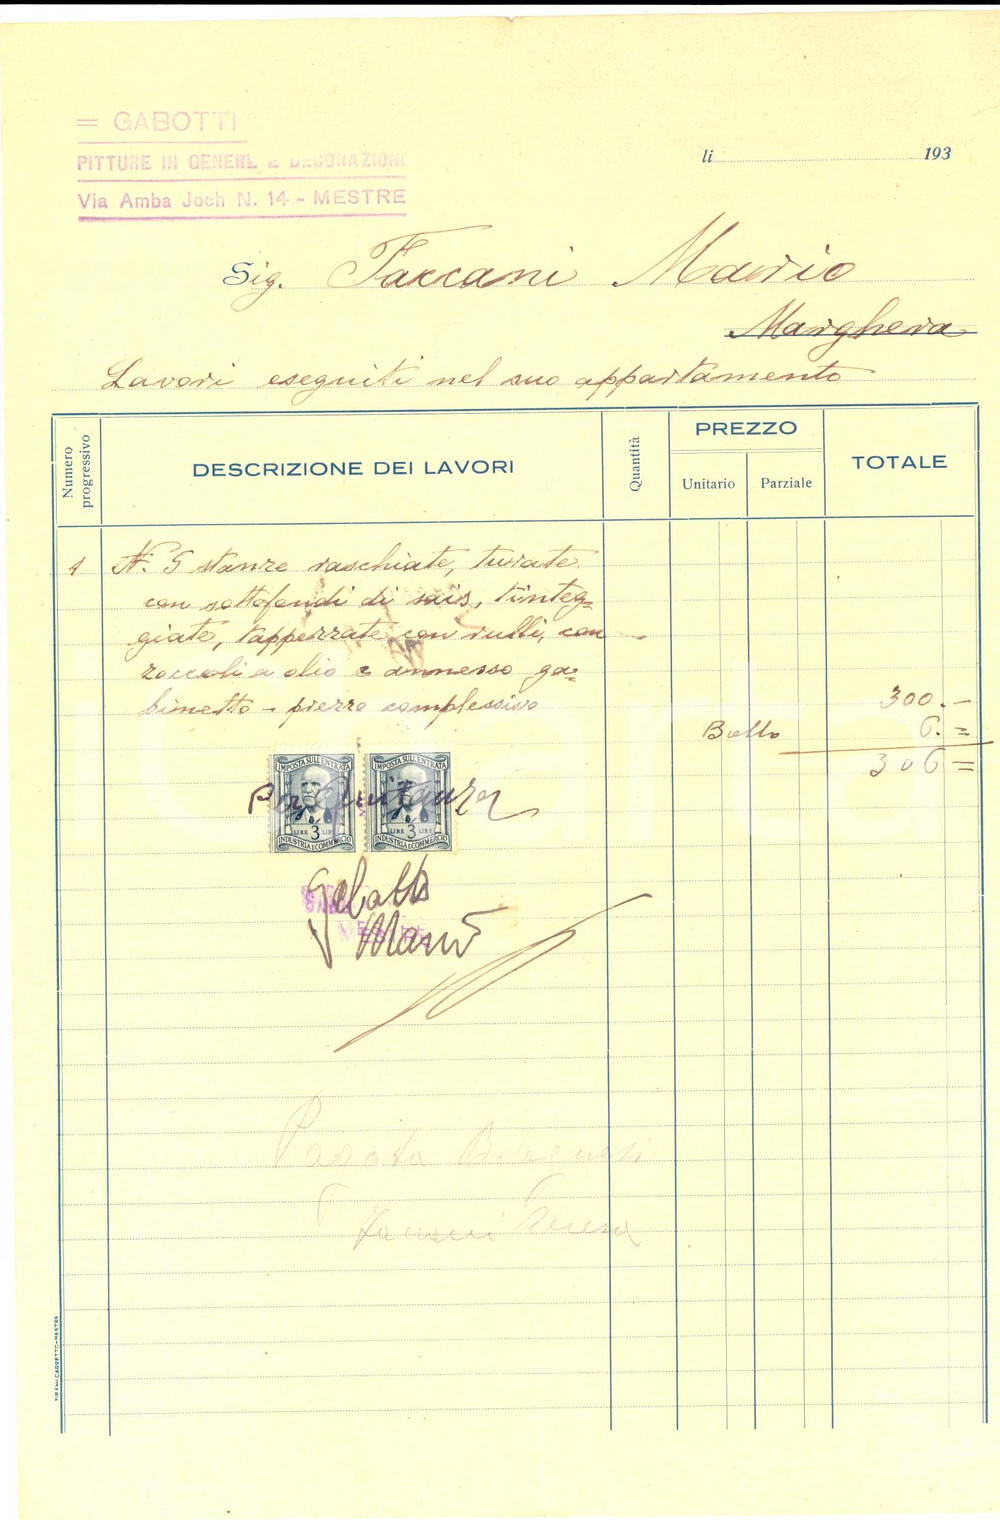 = GABOTTI
PITTURE IN GENERE E DECORAZIONI
Via Amba Joch N. 14 - MESTRE
li 193
Sig. Faccani Mario
Marghera
Lavori eseguiti nel suo appartamento
Numero progressivo
DESCRIZIONE DEI LAVORI
Quantità
PREZZO
Unitario
Parziale
TOTALE
1 N. 5 stanze raschiate, turate
con sottofondi di , tinteg=
giate, tappezzate con rulli, con
zoccoli a olio e annesso ga=
binetto - prezzo complessivo
300.-
Bollo 6.=
306=
IMPOSTA SULL'ENTRATA
LIRE 3 LIRE
INDUSTRIA E COMMERCIO
IMPOSTA SULL'ENTRATA
LIRE 3 LIRE
INDUSTRIA E COMMERCIO
per Quitanza
Gabotti
Mario
MESTRE
Pagata